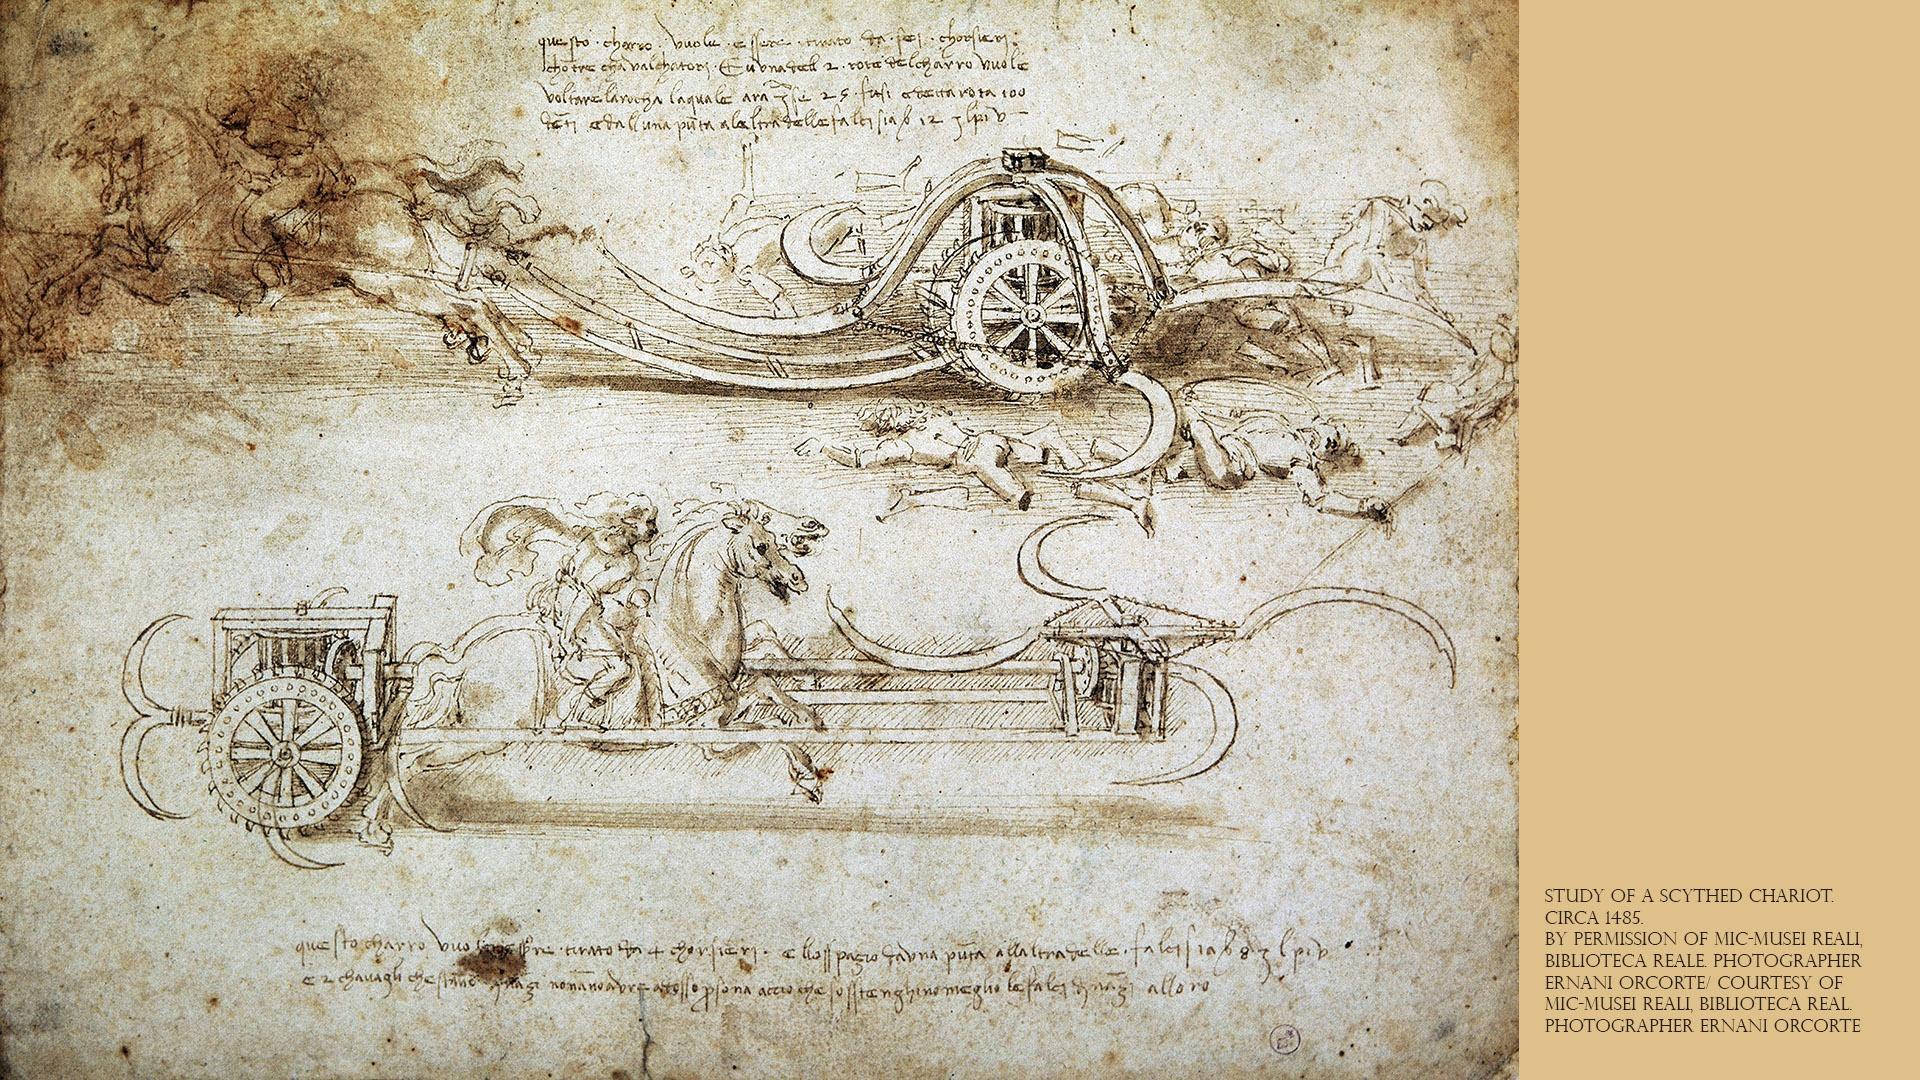 questo · charro · vuole · essere · tirato da sei · chorsieri ·
chotre chavalchatori · E vvnadell 2 · rote delcharro vuole
voltare larocha laquale ara 25 · fusi ecterota 100
dēti e dalluna pūta alaltra delle falci sia b 12
questo charro vuo essere · tirato da 4 chorsieri · e llosspazio davna pūta allaltra delle · falci sia b 8
e 2 chavagli che stāno nonnano avere adosso psona accio che sosstenghino meglio le falci alloro
STUDY OF A SCYTHED CHARIOT.
CIRCA 1485.
BY PERMISSION OF MIC-MUSEI REALI,
BIBLIOTECA REALE. PHOTOGRAPHER
ERNANI ORCORTE/ COURTESY OF
MIC-MUSEI REALI, BIBLIOTECA REAL.
PHOTOGRAPHER ERNANI ORCORTE